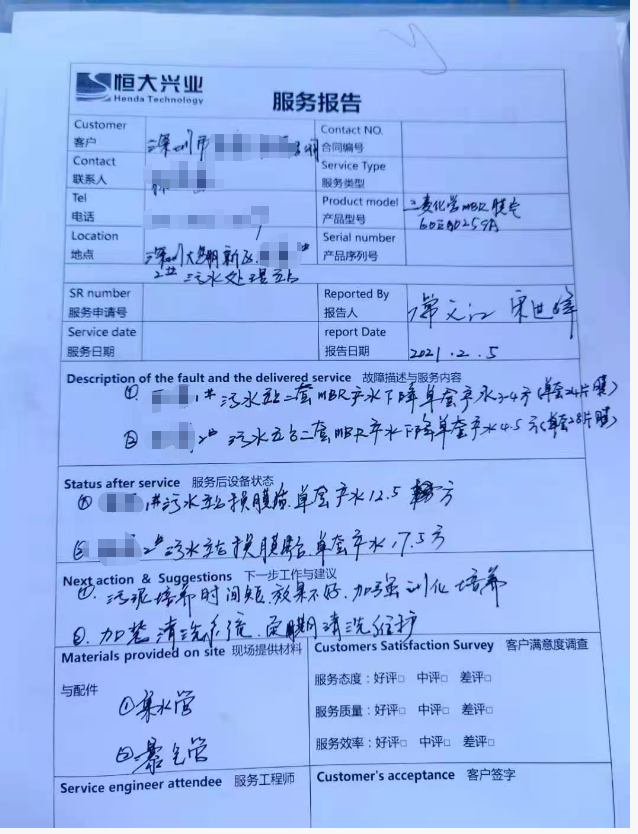 恒大兴业
Henda Technology
服务报告
Customer
客户
深圳市
Contact NO.
合同编号
Contact
联系人
Service Type
服务类型
Tel
电话
Product model
产品型号
三菱化学MBR膜
60E0025SA
Location
地点
深圳大鹏新区
2# 污水处理站
Serial number
产品序列号
SR number
服务申请号
Reported By
报告人
Service date
服务日期
report Date
报告日期
2021.2.5
Description of the fault and the delivered service 故障描述与服务内容
① 1# 污水站二套MBR产水下降单套产水3-4方(单套24片膜)
② 2# 污水站二套MBR产水下降单套产水4-5方(单套28片膜)
Status after service 服务后设备状态
① 1#污水站换膜后,单套产水12.5 方
② 2#污水站换膜后,单套产水17.5方
Next action & Suggestions 下一步工作与建议
①. 污泥培养时间短,效果不好,加强训化培养
②. 加装清洗系统,定期清洗维护
Materials provided on site 现场提供材料
与配件
①集水管
②曝气管
Customers Satisfaction Survey 客户满意度调查
服务态度:好评□ 中评□ 差评□
服务质量:好评□ 中评□ 差评□
服务效率:好评□ 中评□ 差评□
Service engineer attendee 服务工程师
Customer's acceptance 客户签字